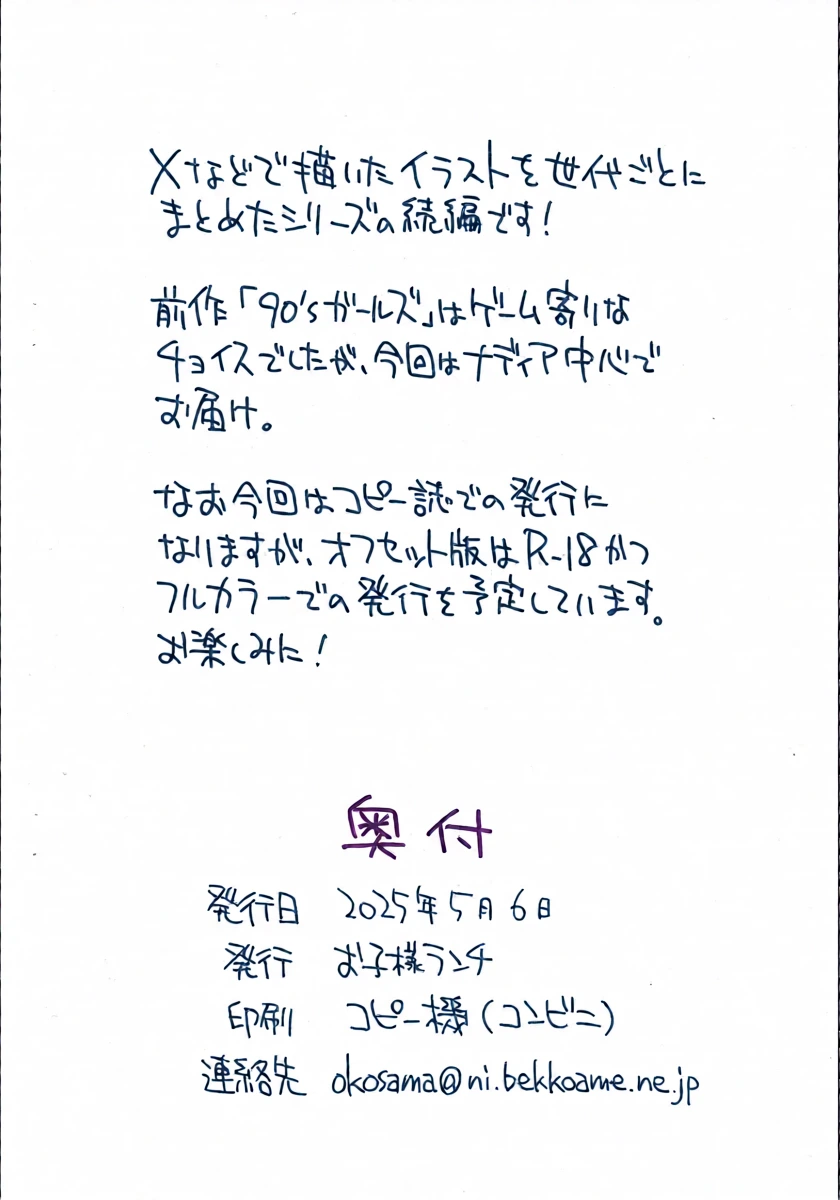 Xなどで描いたイラストを世代ごとに
まとめたシリーズの続編です！
前作「90'sガールズ」はゲーム寄りな
チョイスでしたが、今回はナディア中心で
お届け。
なお今回はコピー誌での発行に
なりますが、オフセット版はR-18かつ
フルカラーでの発行を予定しています。
お楽しみに！
奥付
発行日 2025年5月6日
発行 お子様ランチ
印刷 コピー機（コンビニ）
連絡先 okosama@ni.bekkoame.ne.jp